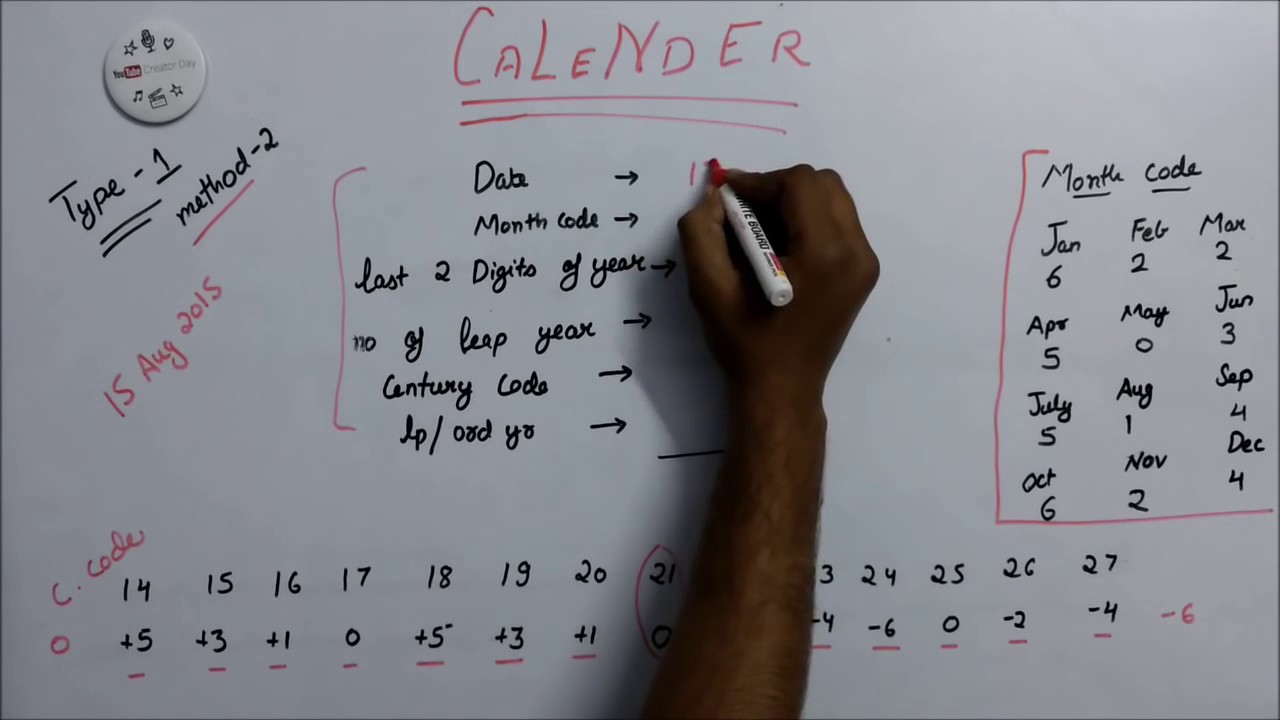 CALENDER
YouTube Creator Day
Type-1
method-2
15 Aug 2015
Date →
Month code →
last 2 Digits of year →
no of leap year →
Century Code →
lp/ord yr →
Month code
Jan Feb Mar
6 2 2
Apr May Jun
5 0 3
July Aug Sep
5 1 4
Oct Nov Dec
6 2 4
C. code
14 15 16 17 18 19 20 21 3 24 25 26 27
0 +5 +3 +1 0 +5 +3 +1 0 -4 -6 0 -2 -4 -6
WHITE BOARD